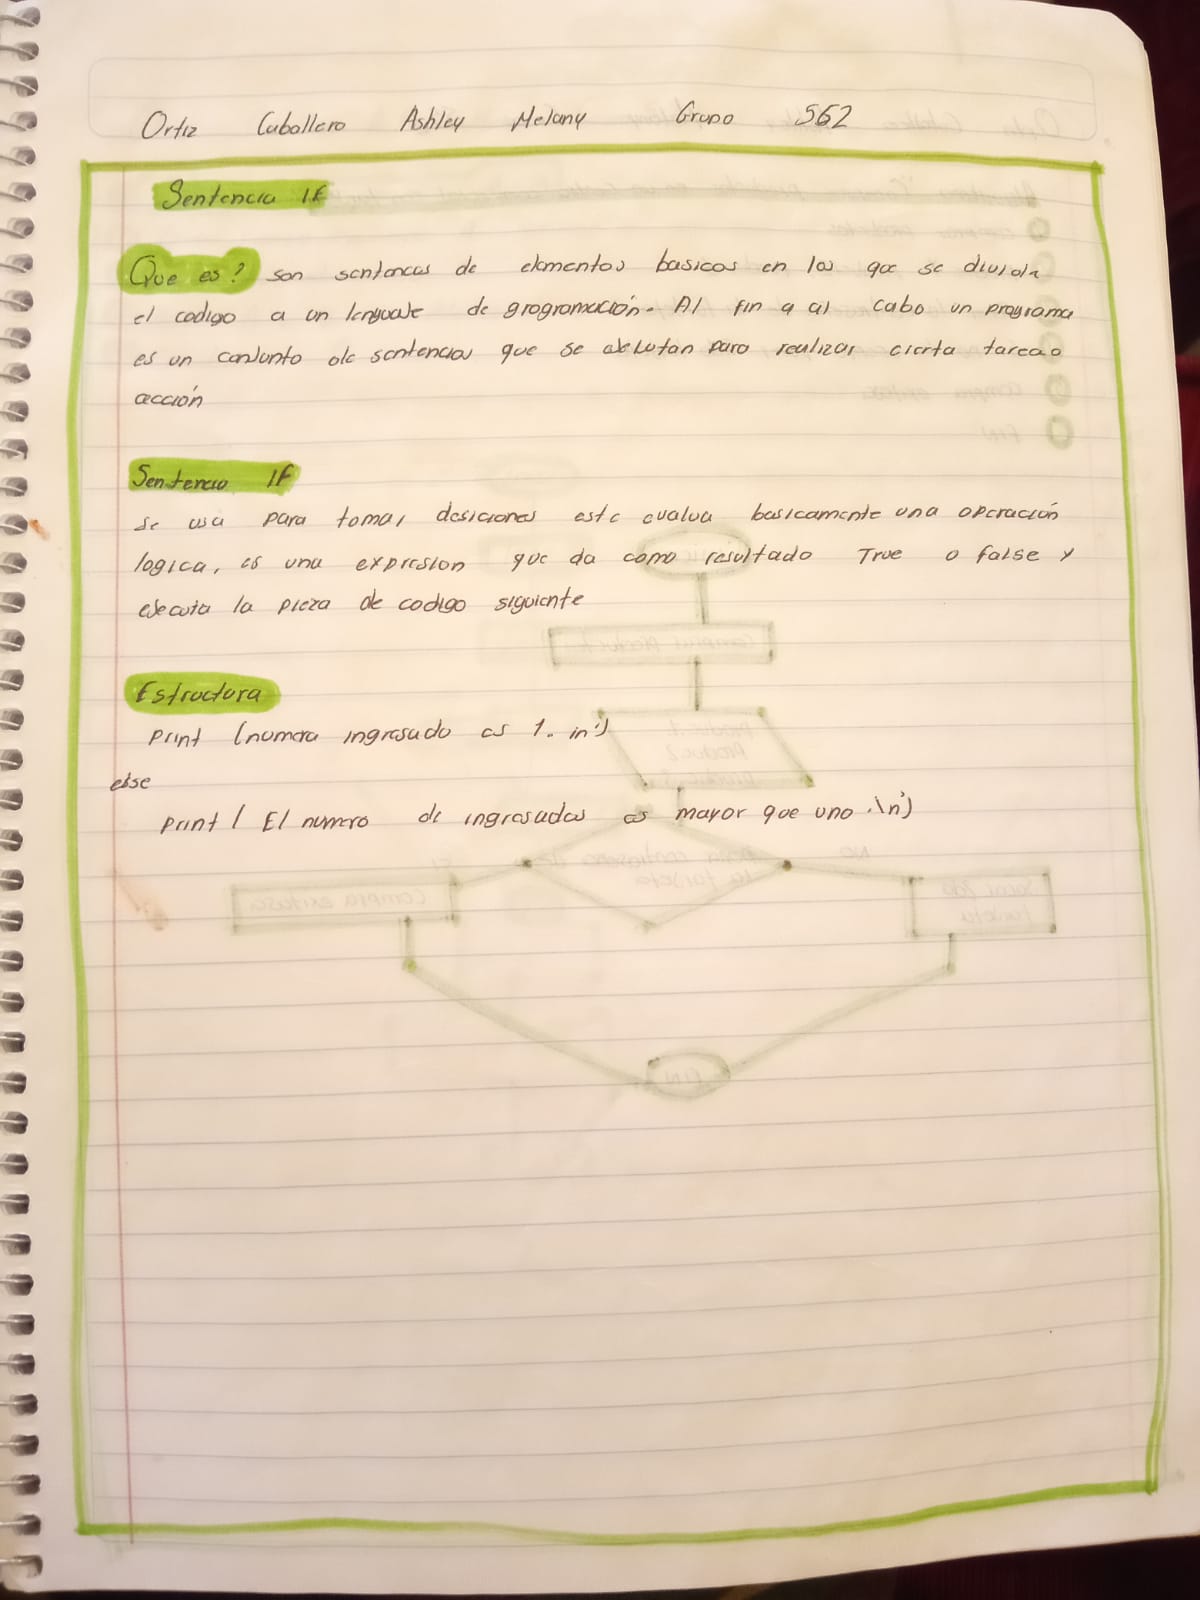 Ortiz Caballero Ashley Melany Grupo 562
Sentencia IF
Que es? son sentancas de elementos basicos en los que se divida
el codigo a un lenguaje de grogromación. Al fin q al cabo un programa
es un conjunto de sentencias que se ejecutan para realizar cierta tarea o
acción
Sentencia IF
se usa para tomar desiciones este evalua basicamente una operación
logica, es una expresion que da como resultado True o false y
ejecuta la pieza de codigo siguiente
Estructura
Print (numero ingresado es 1. in')
else
print ( El numero de ingresados es mayor que uno .\n')